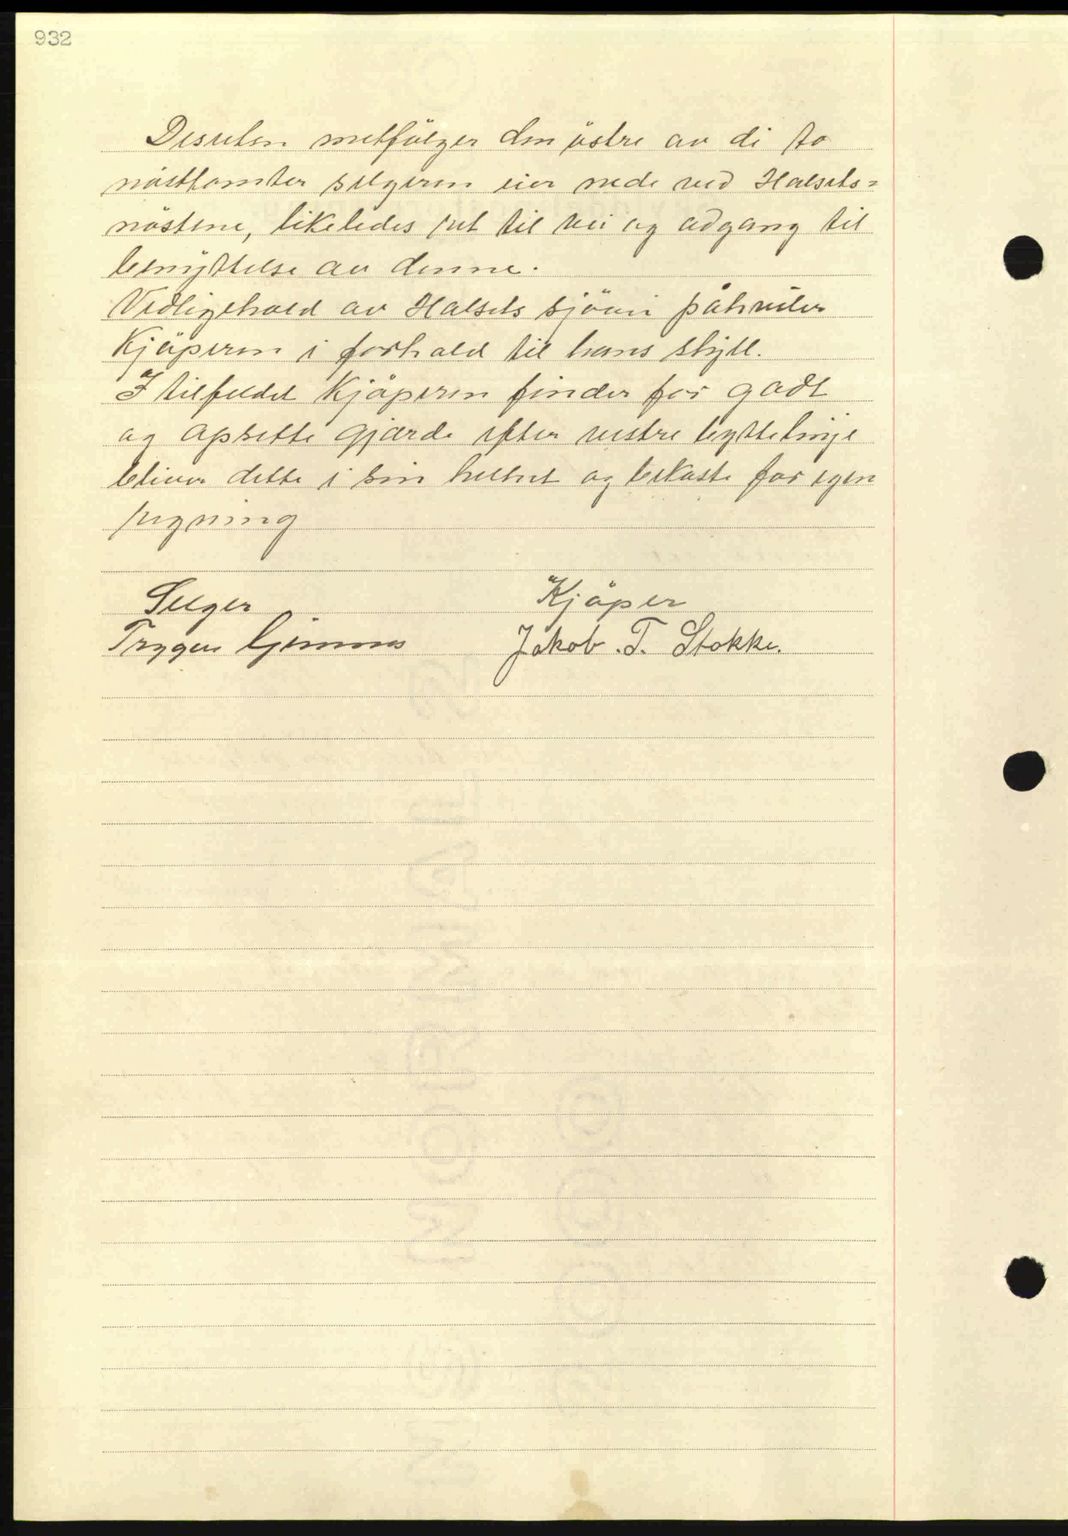 932
Desuten metfölger den östre av di to
nösttomter selgeren eier nede ved Halsets=
nöstene, likeledes ret til vei og adgang til
benyttelse av denne.
Vedligehold av Halsets sjövei påhviler
Kjöperen i forhold til hans skyll.
I tilfeldet Kjöperen finder for godt
og opsette gjærde efter vestre byttelinje
bliver dette i sin helhet og bekoste for egen
regning
Selger
Kjöper
Trygve Gimnes
Jakob. T. Stokke.